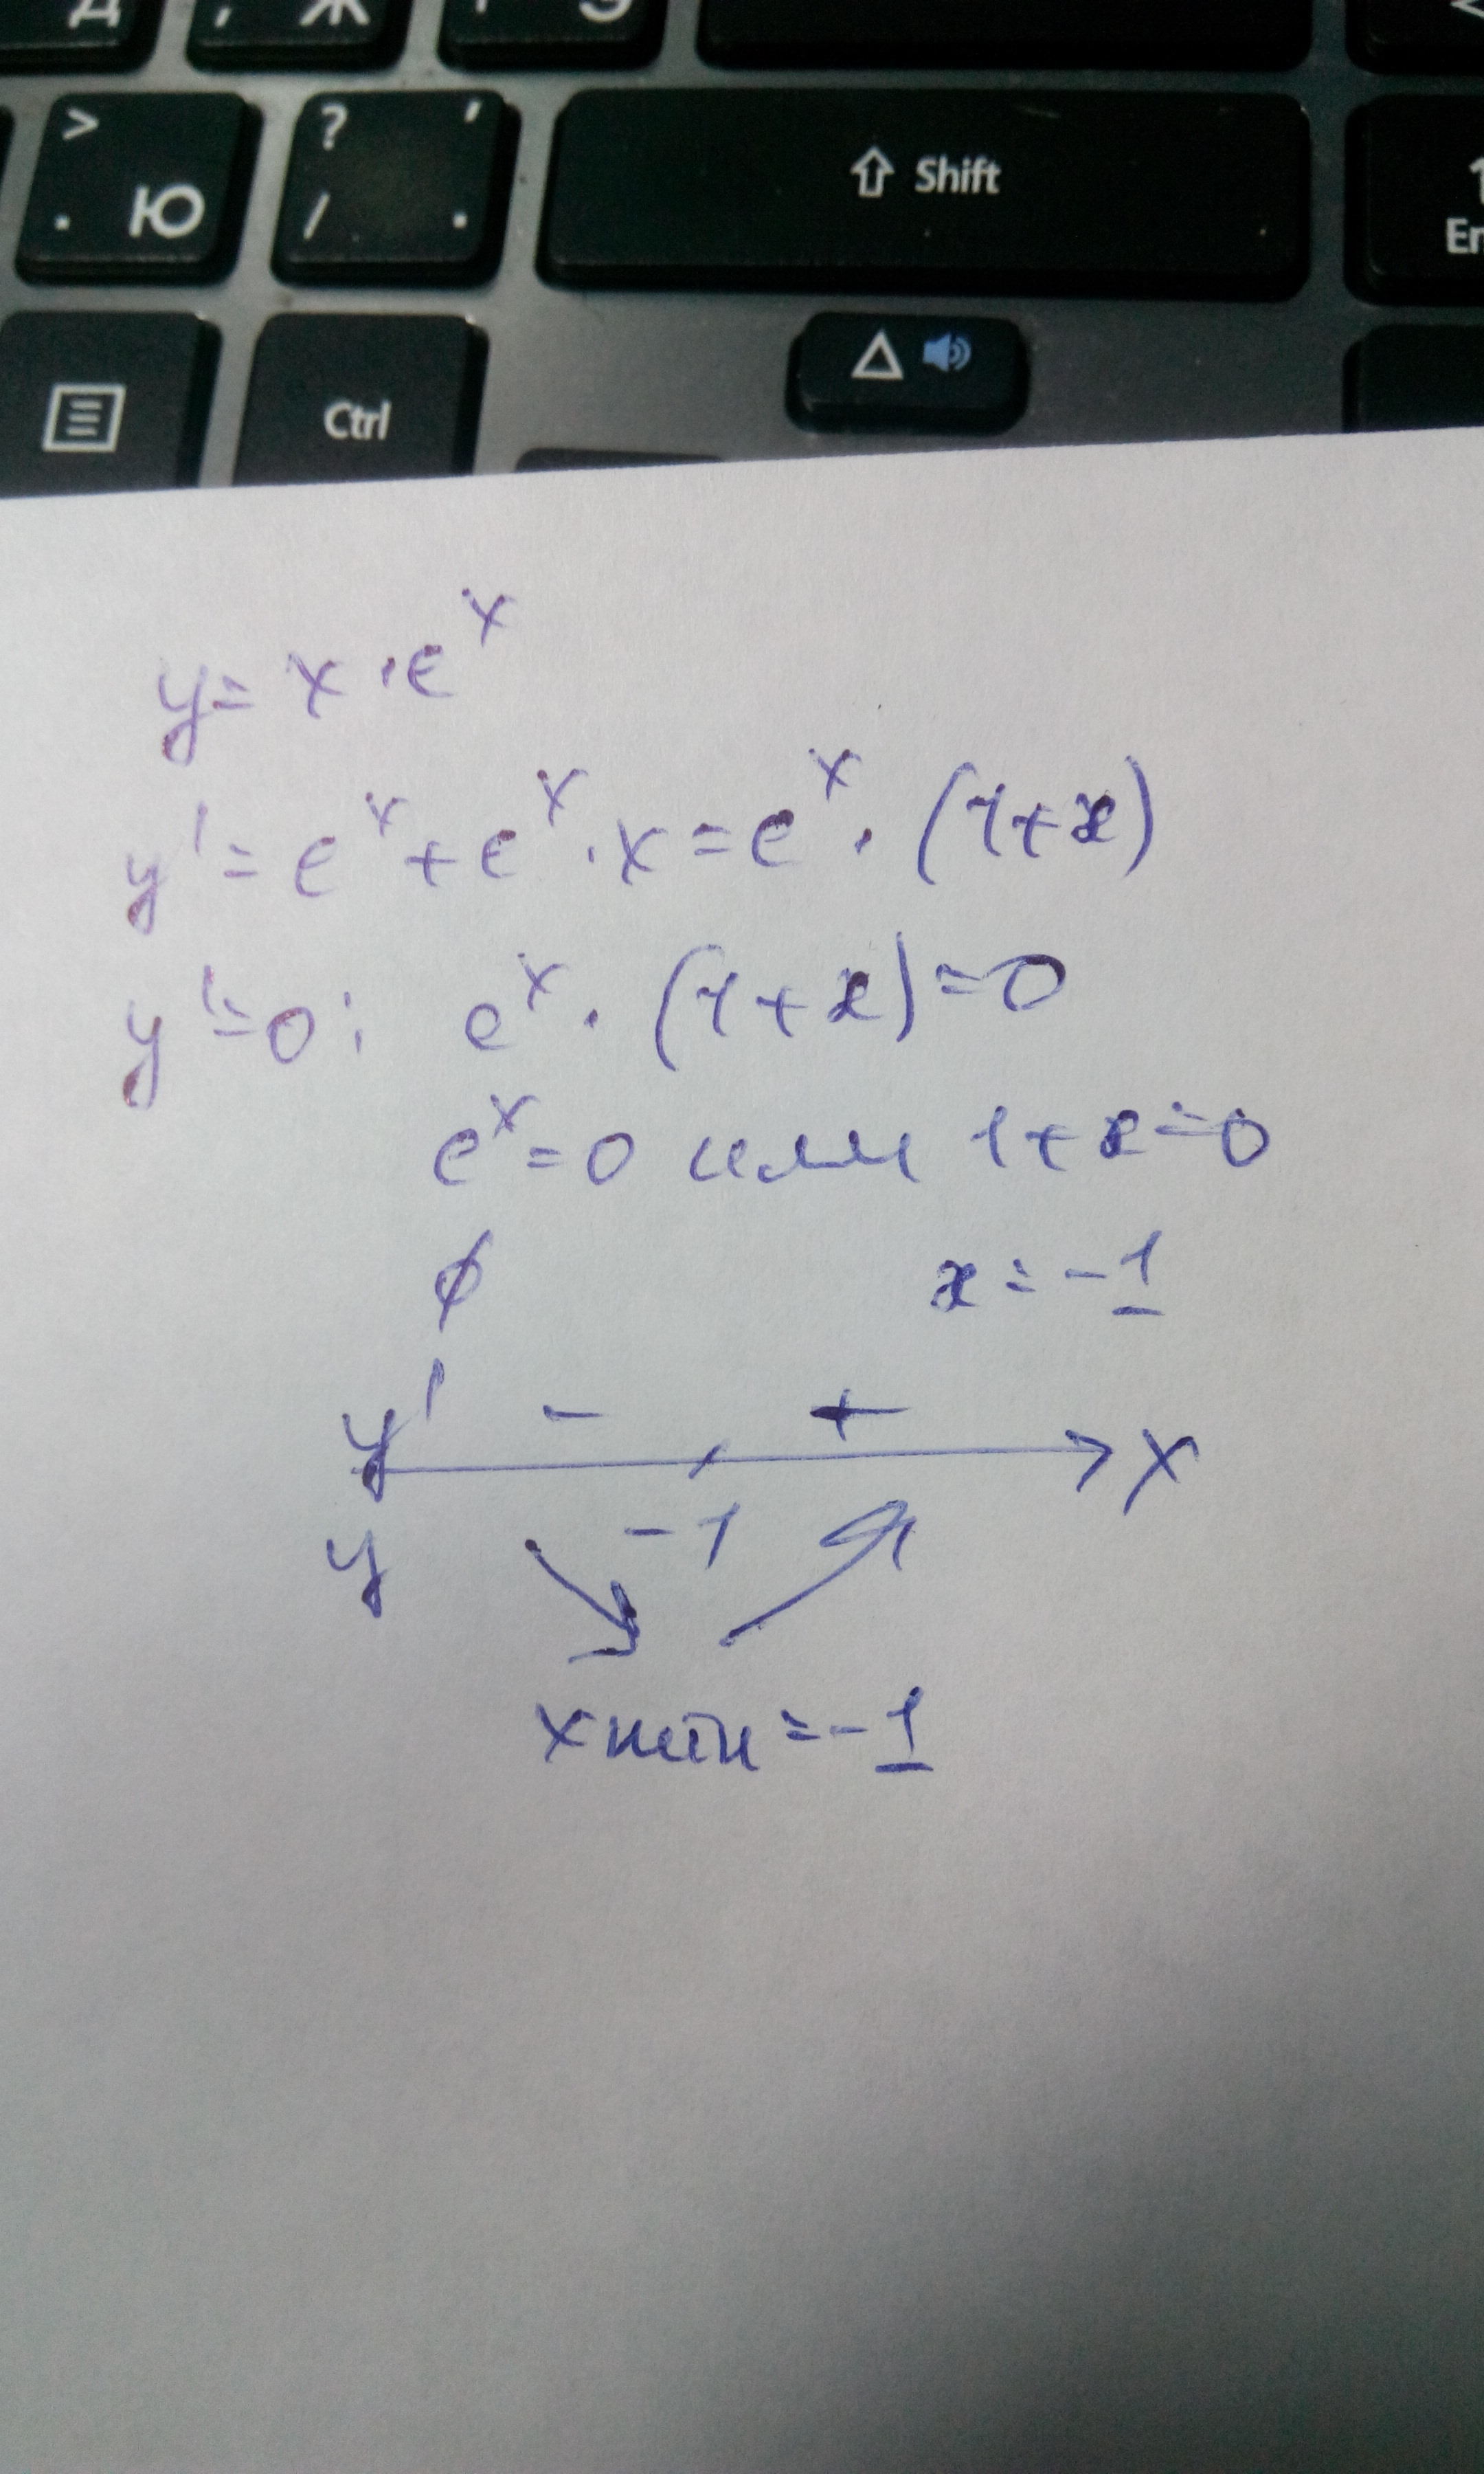 Д ; Ж Э
> . Ю ? ' / . ⇧ Shift En
Ctrl
y = x · e^x
y' = e^x + e^x · x = e^x · (1+x)
y' = 0: e^x · (1+x) = 0
e^x = 0 или 1+x = 0
∅ x = -1
y' - + x
y -1
xmin = -1